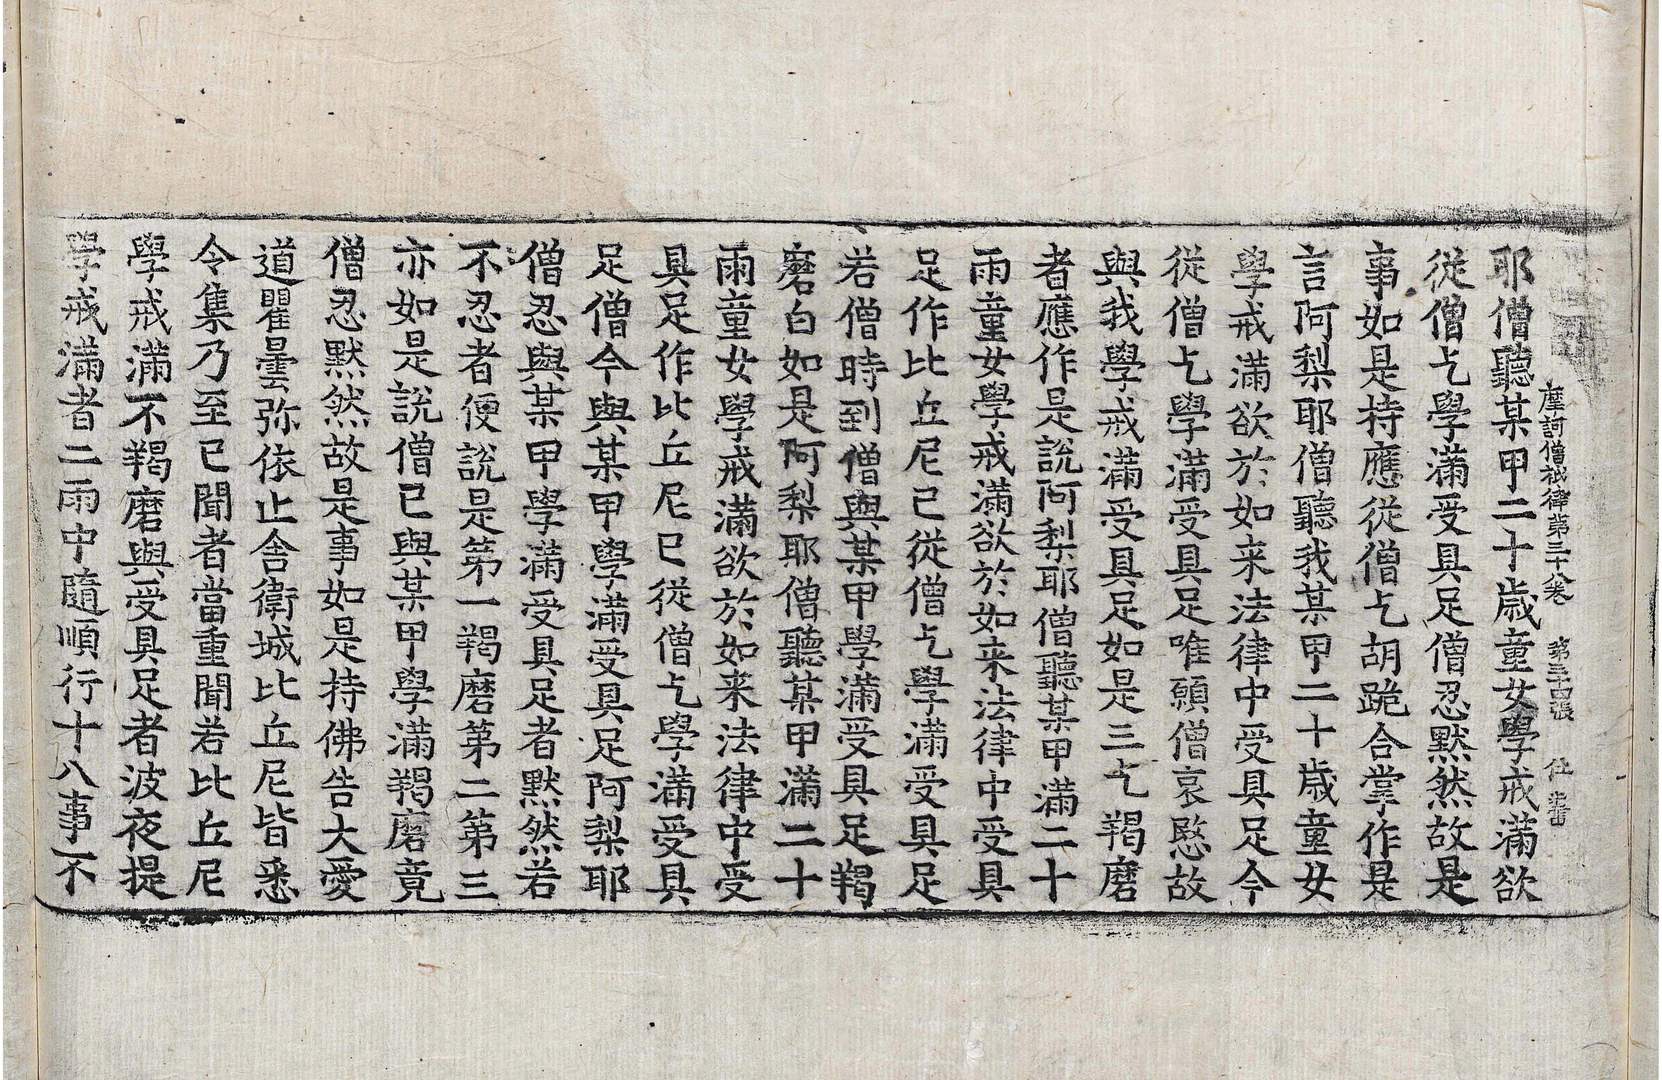 摩訶僧祇律第三十卷 第三十四張 仕 一番
耶僧聽某甲二十歲童女學戒滿欲
從僧乞學滿受具足僧忍默然故是
事如是持應從僧乞胡跪合掌作是
言阿梨耶僧聽我某甲二十歲童女
學戒滿欲於如来法律中受具足今
從僧乞學滿受具足唯願僧哀愍故
與我學戒滿受具足如是三乞羯磨
者應作是說阿梨耶僧聽某甲滿二十
雨童女學戒滿欲於如来法律中受具
足作比丘尼已從僧乞學滿受具足
若僧時到僧與某甲學滿受具足羯
磨白如是阿梨耶僧聽某甲滿二十
雨童女學戒滿欲於如来法律中受
具足作比丘尼已從僧乞學滿受具
足僧今與某甲學滿受具足阿梨耶
僧忍與某甲學滿受具足者默然若
不忍者便說是第一羯磨第二第三
亦如是說僧已與某甲學滿羯磨竟
僧忍默然故是事如是持佛告大愛
道瞿曇弥依止舍衛城比丘尼皆悉
令集乃至已聞者當重聞若比丘尼
學戒滿不羯磨與受具足者波夜提
學戒滿者二雨中隨順行十八事不